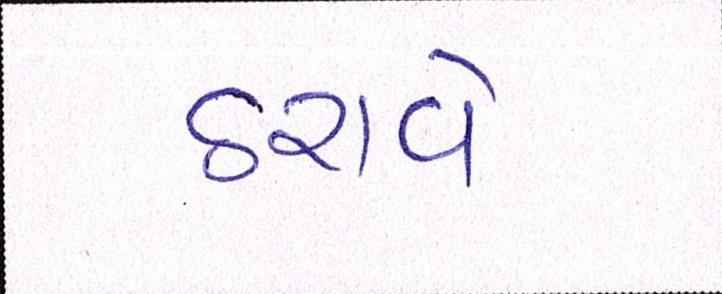 ઠરાવે